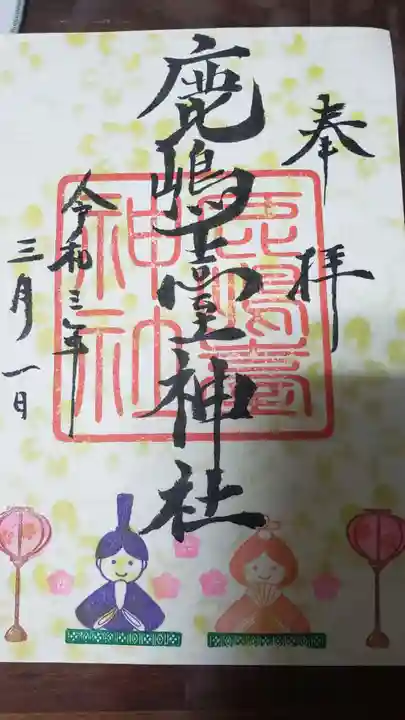 奉拝
鹿嶋臺神社
令和三年
三月一日
鹿嶋臺
神社